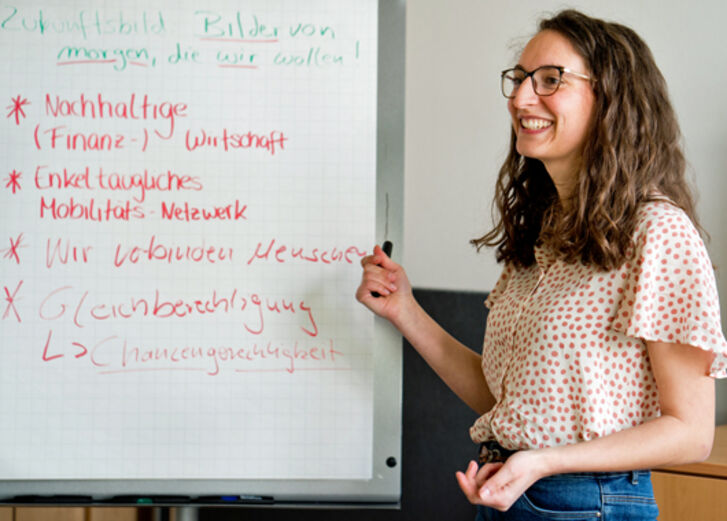 Zukunftsbild Bilder von
morgen, die wir wollen!
* Nachhaltige
(Finanz-) Wirtschaft
* Enkeltaugliches
Mobilitäts-Netzwerk
* Wir verbinden Menschen
* Gleichberechtigung
↳ Chancengerechtigkeit